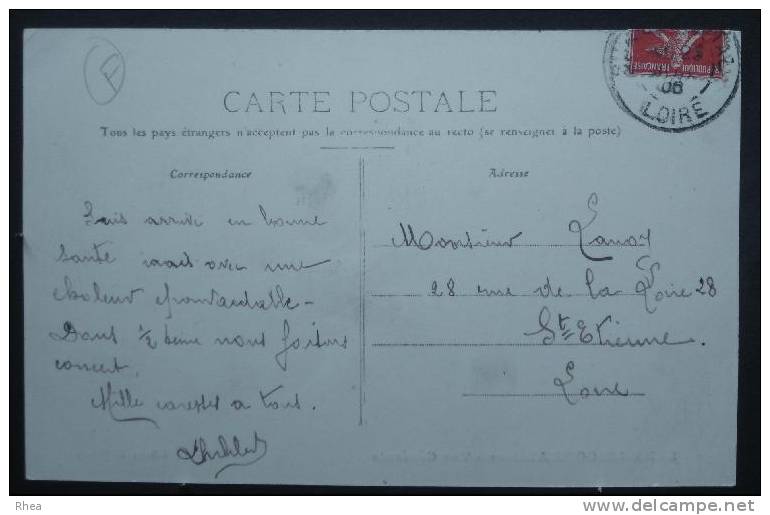 F
RÉPUBLIQUE FRANÇAISE
08
LOIRE
CARTE POSTALE
Tous les pays étrangers n'acceptent pas la correspondance au recto (se renseigner à la poste)
Correspondance
Adresse
Suis arrivé en bonne
santé mais avec une
chaleur épouvantable -
Dans 1/2 heure nous faisons
concert.
Mille caresses a tous.
Monsieur Lanoy
28 rue de la Loire 28
St Etienne.
Loire
Rhea
www.delcampe.net